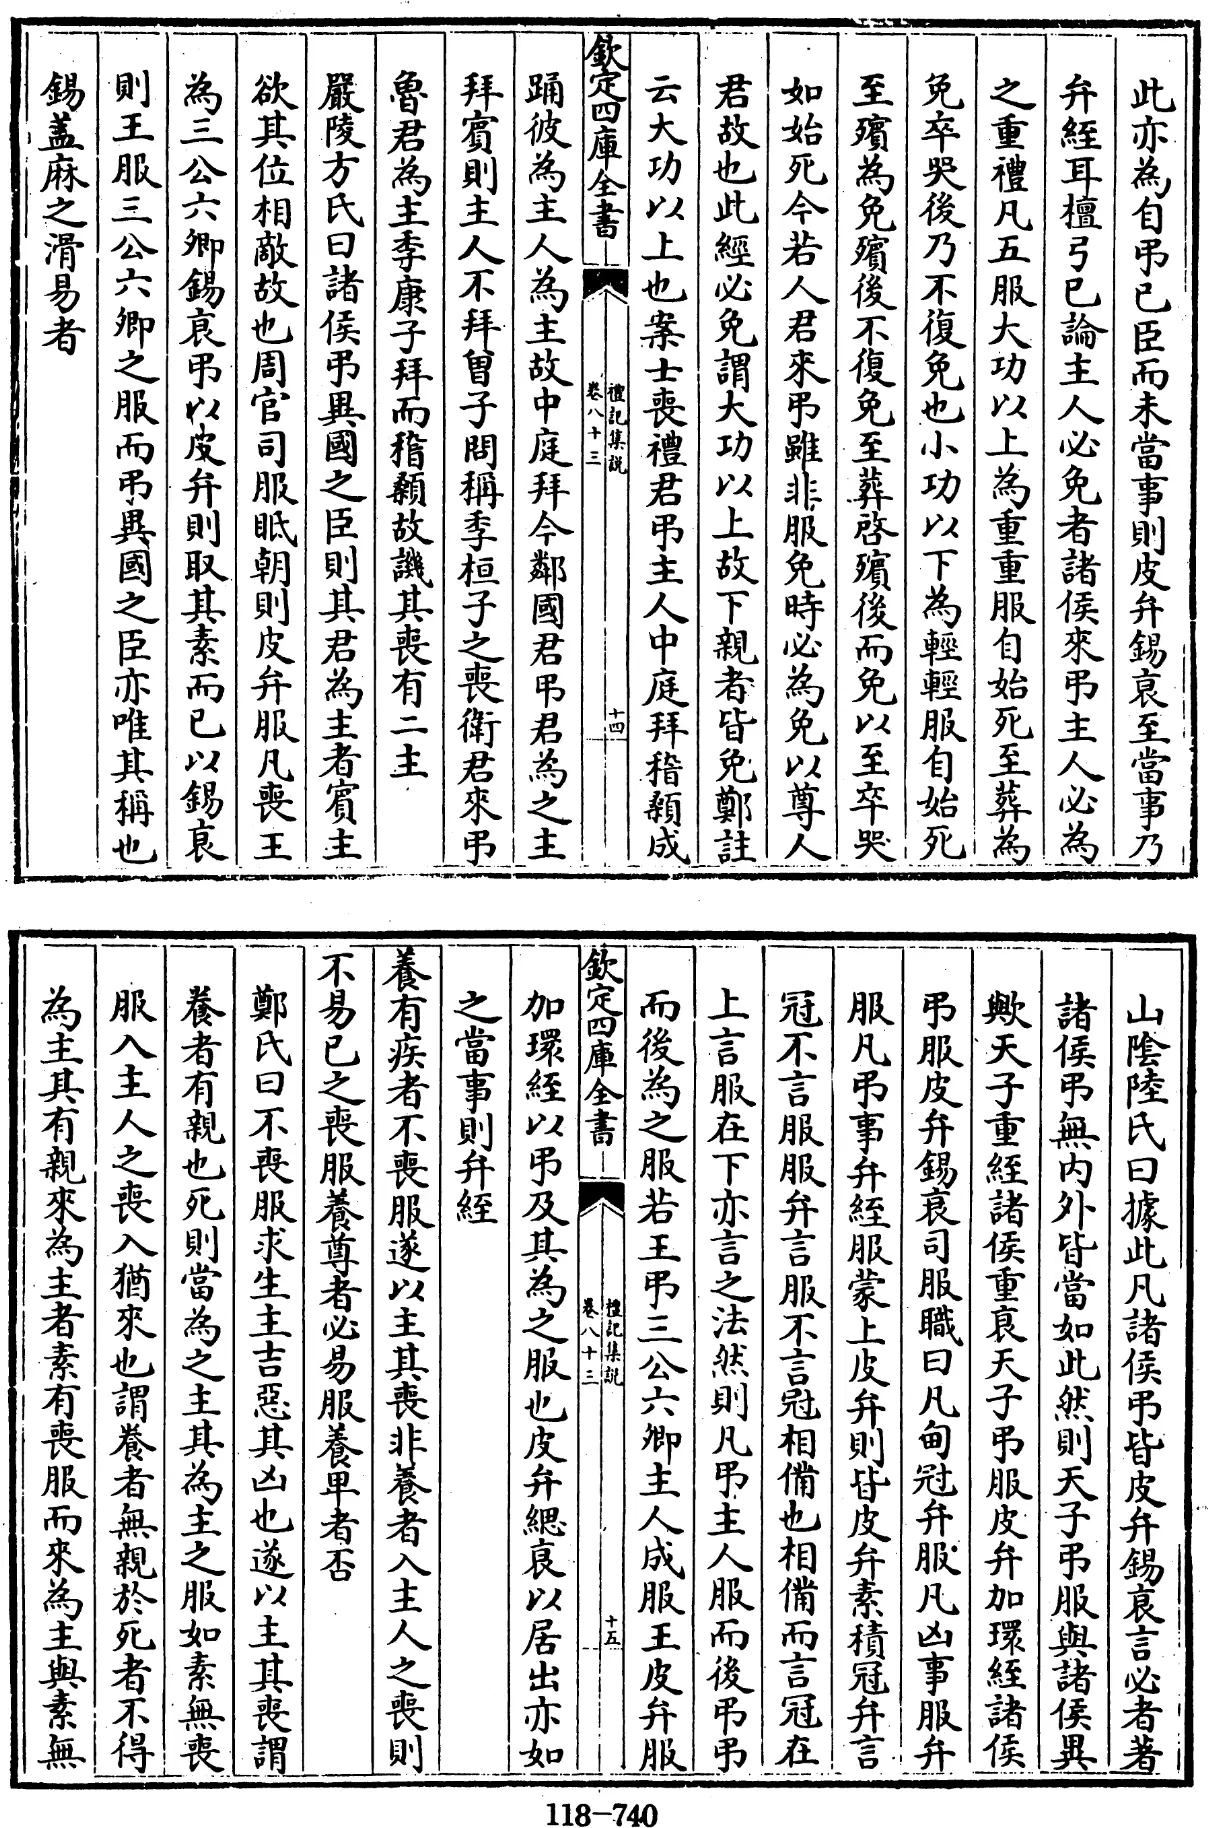 此亦為自弔已臣而未當事則皮弁錫衰至當事乃
弁絰耳檀弓已論主人必免者諸侯來弔主人必為
之重禮凡五服大功以上為重重服自始死至葬為
免卒哭後乃不復免也小功以下為輕輕服自始死
至殯為免殯後不復免至葬啓殯後而免以至卒哭
如始死今若人君來弔雖非服免時必為免以尊人
君故也此經必免謂大功以上故下親者皆免鄭註
云大功以上也案士喪禮君弔主人中庭拜稽顙成
欽定四庫全書
禮記集說
卷八十三
十四
踊彼為主人為主故中庭拜今鄰國君弔君為之主
拜賓則主人不拜曾子問稱季桓子之喪衛君來弔
魯君為主季康子拜而稽顙故譏其喪有二主
嚴陵方氏曰諸侯弔異國之臣則其君為主者賓主
欲其位相敵故也周官司服眡朝則皮弁服凡喪王
為三公六卿錫衰弔以皮弁則取其素而已以錫衰
則王服三公六卿之服而弔異國之臣亦唯其稱也
錫盖麻之滑易者
山陰陸氏曰據此凡諸侯弔皆皮弁錫衰言必者著
諸侯弔無內外皆當如此然則天子弔服與諸侯異
歟天子重絰諸侯重衰天子弔服皮弁加環絰諸侯
弔服皮弁錫衰司服職曰凡甸冠弁服凡凶事服弁
服凡弔事弁絰服蒙上皮弁則皆皮弁素積冠弁言
冠不言服服弁言服不言冠相備也相備而言冠在
上言服在下亦言之法然則凡弔主人服而後弔弔
而後為之服若王弔三公六卿主人成服王皮弁服
欽定四庫全書
禮記集說
卷八十三
十五
加環絰以弔及其為之服也皮弁緦衰以居出亦如
之當事則弁絰
養有疾者不喪服遂以主其喪非養者入主人之喪則
不易已之喪服養尊者必易服養卑者否
鄭氏曰不喪服求生主吉惡其凶也遂以主其喪謂
養者有親也死則當為之主其為主之服如素無喪
服入主人之喪入猶來也謂養者無親於死者不得
為主其有親來為主者素有喪服而來為主與素無
118-740